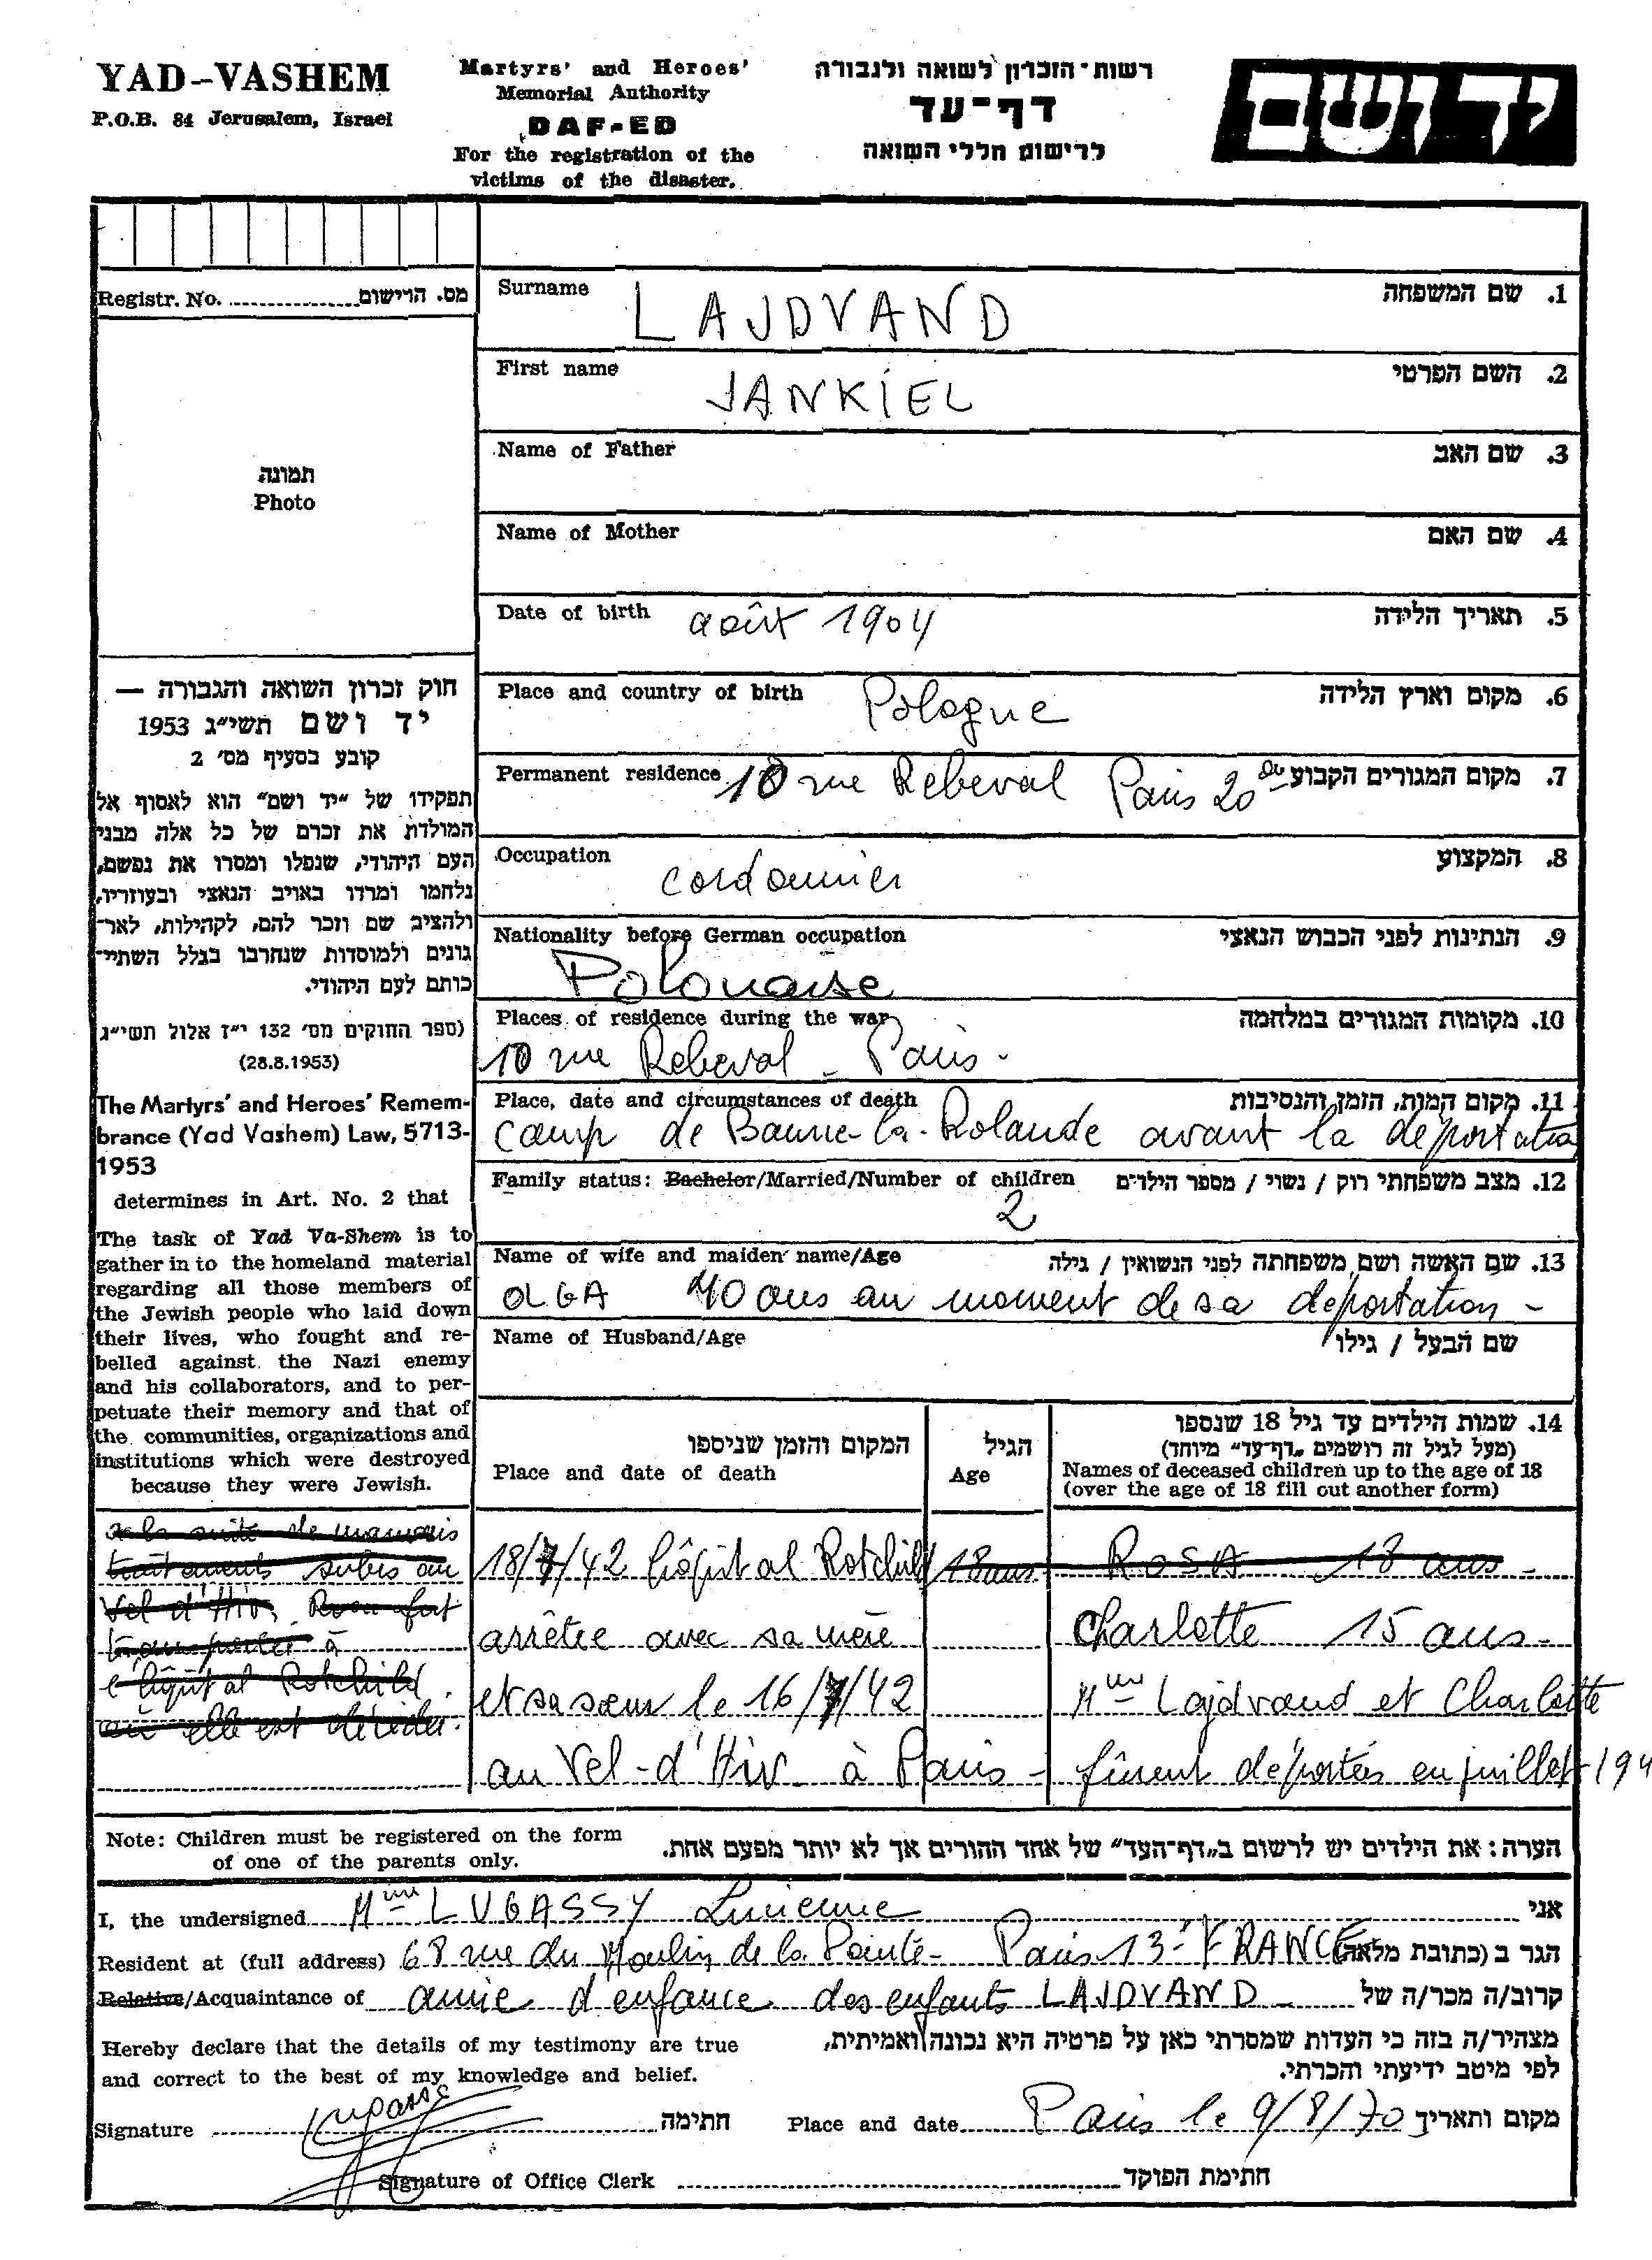 YAD-VASHEM
P.O.B. 84 Jerusalem, Israel
Martyrs' and Heroes'
Memorial Authority
DAF-ED
For the registration of the
victims of the disaster.
רשות-הזכרון לשואה ולגבורה
דף-עד
לרישום חללי השואה
יד ושם
Registr. No. מס. הרישום
תמונה
Photo
חוק זכרון השואה והגבורה —
יד ושם תשי״ג 1953
קובע בסעיף מס׳ 2
תפקידו של ״יד ושם״ הוא לאסוף אל
המולדת את זכרם של כל אלה מבני
העם היהודי, שנפלו ומסרו את נפשם,
נלחמו ומרדו באויב הנאצי ובעוזריו,
ולהציב שם וזכר להם, לקהילות, לאר-
גונים ולמוסדות שנחרבו בגלל השתיי-
כותם לעם היהודי.
(ספר החוקים מס׳ 132 י״ז אלול תשי״ג
(28.8.1953)
The Martyrs' and Heroes' Remem-
brance (Yad Vashem) Law, 5713-
1953
determines in Art. No. 2 that
The task of Yad Va-Shem is to
gather in to the homeland material
regarding all those members of
the Jewish people who laid down
their lives, who fought and re-
belled against the Nazi enemy
and his collaborators, and to per-
petuate their memory and that of
the communities, organizations and
institutions which were destroyed
because they were Jewish.
à la suite de mauvais
traitements subis au
Vel d'Hiv.
transportée à
l'hôpital Rotchild
où elle est décédée.
Surname 1. שם המשפחה
LAJDVAND
First name 2. השם הפרטי
JANKIEL
Name of Father 3. שם האב
Name of Mother 4. שם האם
Date of birth août 1904 5. תאריך הלידה
Place and country of birth Pologne 6. מקום וארץ הלידה
Permanent residence 10 rue Rebeval Paris 20 7. מקום המגורים הקבוע
Occupation 8. המקצוע
cordonnier
Nationality before German occupation 9. הנתינות לפני הכבוש הנאצי
Polonaise
Places of residence during the war 10. מקומות המגורים במלחמה
10 rue Rebeval - Paris -
Place, date and circumstances of death 11. מקום המות, הזמן והנסיבות
Camp de Baune-la-Rolande avant la déportation
Family status: Bachelor/Married/Number of children 12. מצב משפחתי רוק / נשוי / מספר הילדים
2
Name of wife and maiden name/Age 13. שם האשה ושם משפחתה לפני הנשואין / גילה
OLGA 40 ans au moment de sa déportation -
Name of Husband/Age שם הבעל / גילו
14. שמות הילדים עד גיל 18 שנספו
(מעל לגיל זה רושמים ״דף-עד״ מיוחד)
Names of deceased children up to the age of 18
(over the age of 18 fill out another form)
הגיל
Age
המקום והזמן שניספו
Place and date of death
18/7/42 hôpital Rotchild 18 ans ROSA 18 ans -
arrêtée avec sa mère Charlotte 15 ans -
et sa sœur le 16/7/42 Mme Lajdvand et Charlotte
au Vel-d'Hiv à Paris - fûrent déportées en juillet 194
Note: Children must be registered on the form
of one of the parents only.
הערה: את הילדים יש לרשום ב״דף-העד״ של אחד ההורים אך לא יותר מפעם אחת.
I, the undersigned Mme LUGASSY Lucienne אני
Resident at (full address) 68 rue du Moulin de la Pointe - Paris 13 - FRANCE הגר ב (כתובת מלאה)
Relative/Acquaintance of amie d'enfance des enfants LAJDVAND - קרוב/ה מכר/ה של
Hereby declare that the details of my testimony are true
and correct to the best of my knowledge and belief.
מצהיר/ה בזה כי העדות שמסרתי כאן על פרטיה היא נכונה ואמיתית,
לפי מיטב ידיעתי והכרתי.
Signature Lugassy חתימה Place and date Paris le 9/8/70 מקום ותאריך
Signature of Office Clerk חתימת הפוקד